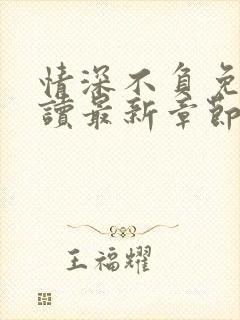 情深不負免
讀最新章節
王福耀